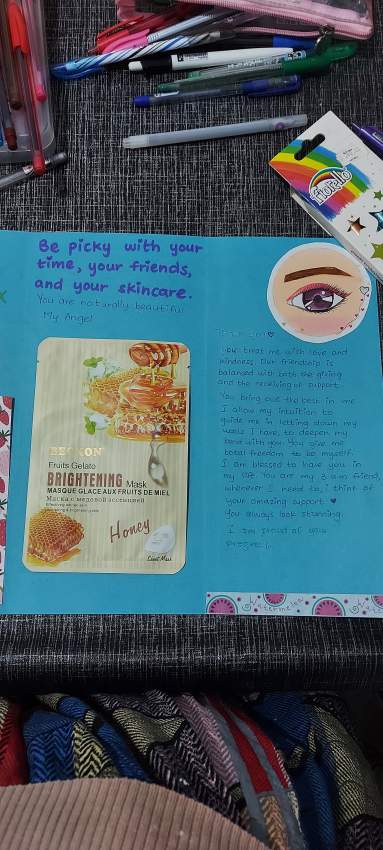 fiorello
Be picky with your
time, your friends,
and your skincare.
You are naturally beautiful
My Angel
Fruits Gelato
BRIGHTENING Mask
MASQUE GLACE AUX FRUITS DE MIEL
Маска с медовой эссенцией
Honey
You treat me with love and
kindness. Our friendship is
balanced with both the giving
and the receiving of support.
You bring out the best in me
I allow my intuition to
guide me in letting down my
walls I have, to deepen my
bond with you. You give me
total freedom to be myself.
I am blessed to have you in
my life. You are my 3 a.m friend,
whenever I need to, i think of
your amazing support ♥
You always look stunning.
I am proud of your